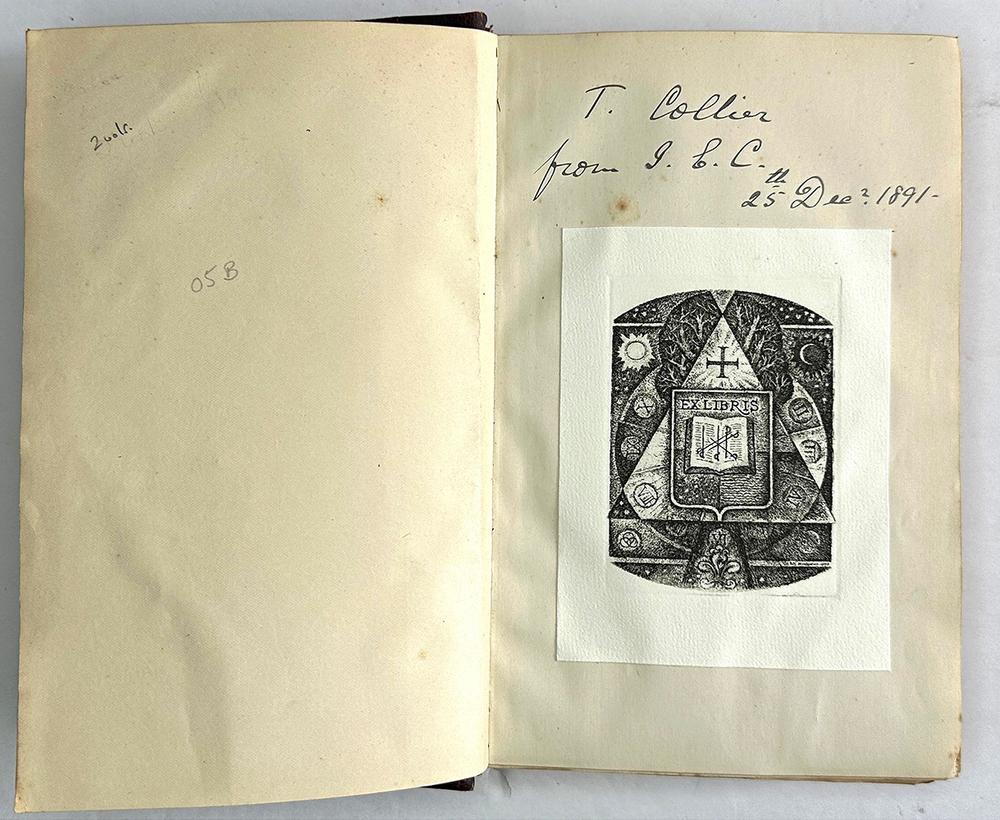 2 vols.
05B
T. Collier
from I. E. C.
25th Decr. 1891-
EX LIBRIS